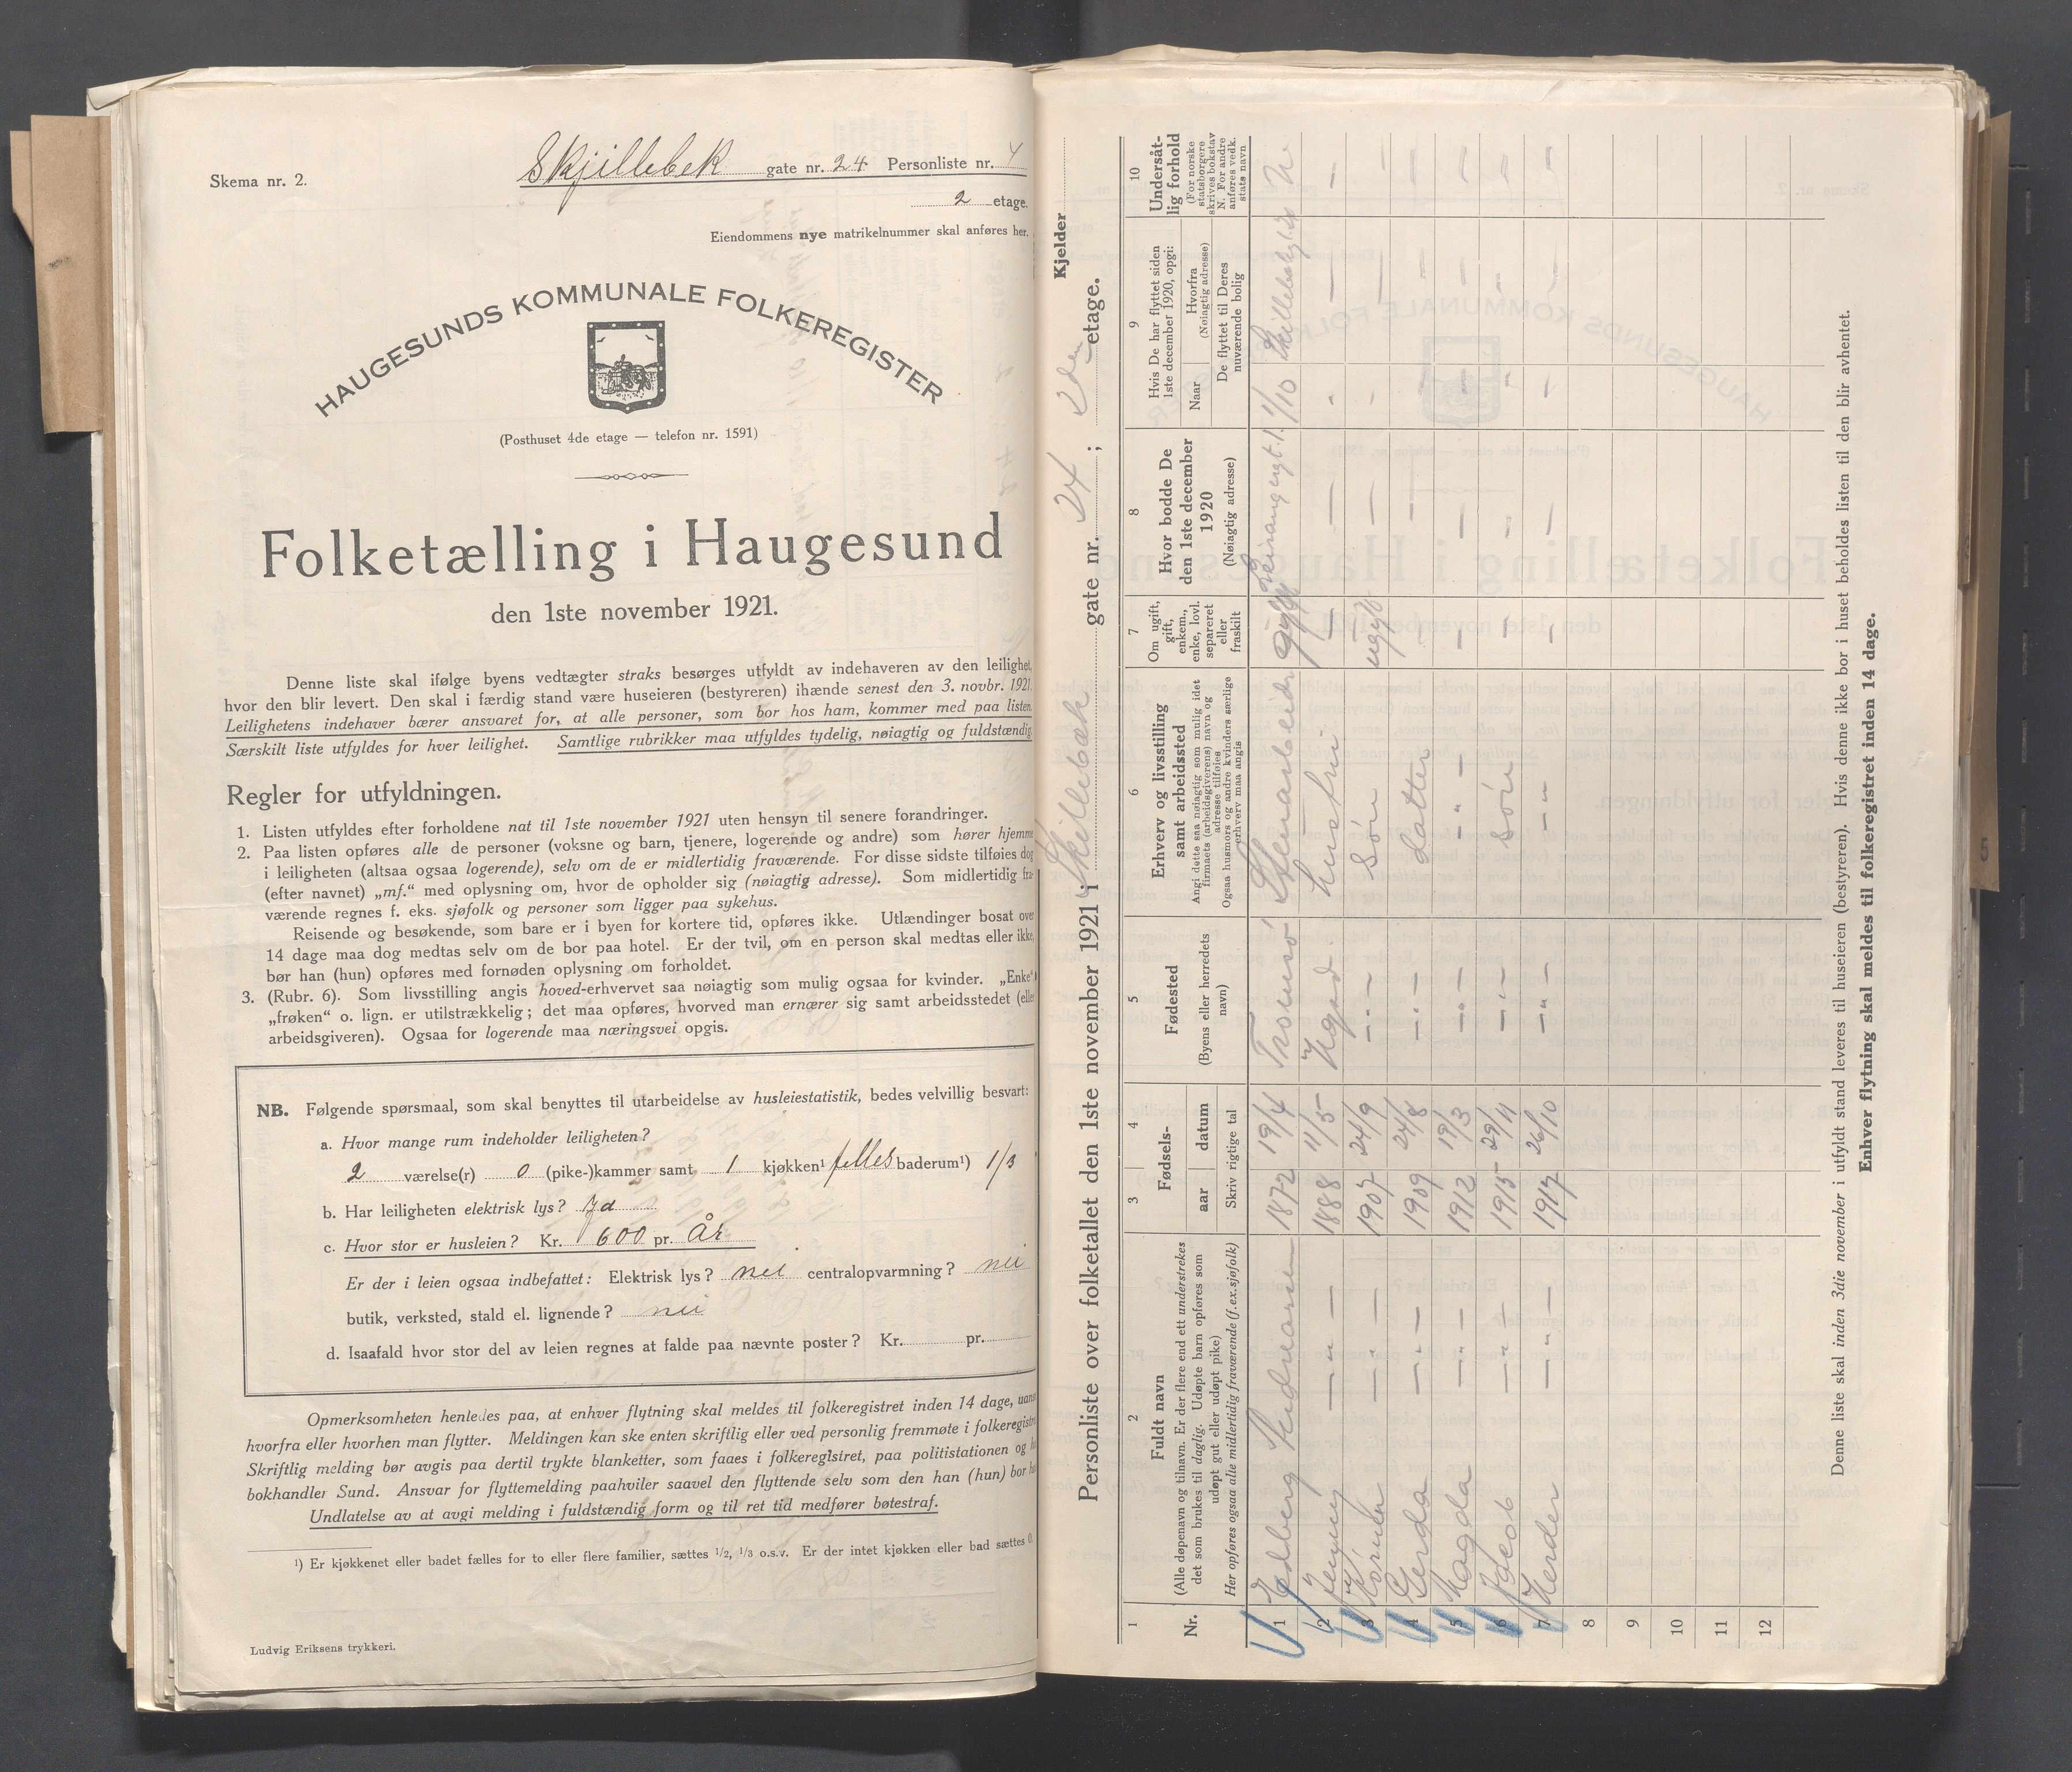 Skema nr. 2.
Skjillebek gate nr. 24 Personliste nr. 4
2 etage.
Eiendommens nye matrikelnummer skal anføres her.
HAUGESUNDS KOMMUNALE FOLKEREGISTER
(Posthuset 4de etage — telefon nr. 1591)
Folketælling i Haugesund
den 1ste november 1921.
Denne liste skal ifølge byens vedtægter straks besørges utfyldt av indehaveren av den leilighet,
hvor den blir levert. Den skal i færdig stand være huseieren (bestyreren) ihænde senest den 3. novbr. 1921.
Leilighetens indehaver bærer ansvaret for, at alle personer, som bor hos ham, kommer med paa listen.
Særskilt liste utfyldes for hver leilighet. Samtlige rubrikker maa utfyldes tydelig, nøiagtig og fuldstændig.
Regler for utfyldningen.
1. Listen utfyldes efter forholdene nat til 1ste november 1921 uten hensyn til senere forandringer.
2. Paa listen opføres alle de personer (voksne og barn, tjenere, logerende og andre) som hører hjemme
i leiligheten (altsaa ogsaa logerende), selv om de er midlertidig fraværende. For disse sidste tilføies dog
(efter navnet) „mf.“ med oplysning om, hvor de opholder sig (nøiagtig adresse). Som midlertidig fra-
værende regnes f. eks. sjøfolk og personer som ligger paa sykehus.
Reisende og besøkende, som bare er i byen for kortere tid, opføres ikke. Utlændinger bosat over
14 dage maa dog medtas selv om de bor paa hotel. Er der tvil, om en person skal medtas eller ikke,
bør han (hun) opføres med fornøden oplysning om forholdet.
3. (Rubr. 6). Som livsstilling angis hoved-erhvervet saa nøiagtig som mulig ogsaa for kvinder. „Enke“,
„frøken“ o. lign. er utilstrækkelig; det maa opføres, hvorved man ernærer sig samt arbeidsstedet (eller
arbeidsgiveren). Ogsaa for logerende maa næringsvei opgis.
NB. Følgende spørsmaal, som skal benyttes til utarbeidelse av husleiestatistik, bedes velvillig besvart:
a. Hvor mange rum indeholder leiligheten?
2 værelse(r) 0 (pike-)kammer samt 1 kjøkken¹ felles baderum¹) 1/3
b. Har leiligheten elektrisk lys? Ja
c. Hvor stor er husleien? Kr. 600 pr. År
Er der i leien ogsaa indbefattet: Elektrisk lys? nei centralopvarmning? nei
butik, verksted, stald el. lignende? nei
d. Isaafald hvor stor del av leien regnes at falde paa nævnte poster? Kr. pr.
Opmerksomheten henledes paa, at enhver flytning skal meldes til folkeregistret inden 14 dage, uans
hvorfra eller hvorhen man flytter. Meldingen kan ske enten skriftlig eller ved personlig fremmøte i folkeregistr
Skriftlig melding bør avgis paa dertil trykte blanketter, som faaes i folkeregistret, paa politistationen og h
bokhandler Sund. Ansvar for flyttemelding paahviler saavel den flyttende selv som den han (hun) bor h
Undlatelse av at avgi melding i fuldstændig form og til ret tid medfører bøtestraf.
¹) Er kjøkkenet eller badet fælles for to eller flere familier, sættes 1/2, 1/3 o.s.v. Er der intet kjøkken eller bad sættes 0.
Ludvig Eriksens trykkeri.
Kjelder
Personliste over folketallet den 1ste november 1921 i Skillebæk gate nr. 24 ; 2den etage.
1 2 3 4 5 6 7 8 9 10
Nr.
Fuldt navn
(Alle døpenavn og tilnavn. Er der flere end ett understrekes
det som brukes til daglig. Udøpte barn opføres som
udøpt gut eller udøpt pike)
Her opføres ogsaa alle midlertidig fraværende (f.ex.sjøfolk)
Fødsels-
aar datum
Skriv rigtige tal
Fødested
(Byens eller herredets
navn)
Erhverv og livsstilling
samt arbeidssted
Angi dette saa nøiagtig som mulig idet
firmaets (arbeidsgiverens) navn og
adresse tilføies
Ogsaa husmors og andre kvinders særlige
erhverv maa angis
Om ugift,
gift,
enkem.,
enke, lovl.
separeret
eller
fraskilt
Hvor bodde De
den 1ste december
1920
(Nøiagtig adresse)
Hvis De har flyttet siden
1ste december 1920, opgi:
Naar
Hvorfra
(Nøiagtig adresse)
De flyttet til Deres
nuværende bolig
Undersåt-
lig forhold
(For norske
statsborgere
skrives bokstav
N. For andre
anføres vedk.
stats navn
1 Edberg Andreasen 1872 19/4 Tromsø gift 1/10 N
2 Jenny —"— 1888 11/5 Hgsd. husfru —
3 —"— 1907 24/9 —"— Søn ugift —
4 Gerda —"— 1909 24/8 —"— datter —
5 Magda —"— 1912 19/3 —"— —"— —
6 Jacob —"— 1915 29/11 —"— Søn —
7 Herder —"— 1917 26/10 —"— —"— —
8
9
10
11
12
Denne liste skal inden 3die november i utfyldt stand leveres til huseieren (bestyreren). Hvis denne ikke bor i huset beholdes listen til den blir avhentet.
Enhver flytning skal meldes til folkeregistret inden 14 dage.